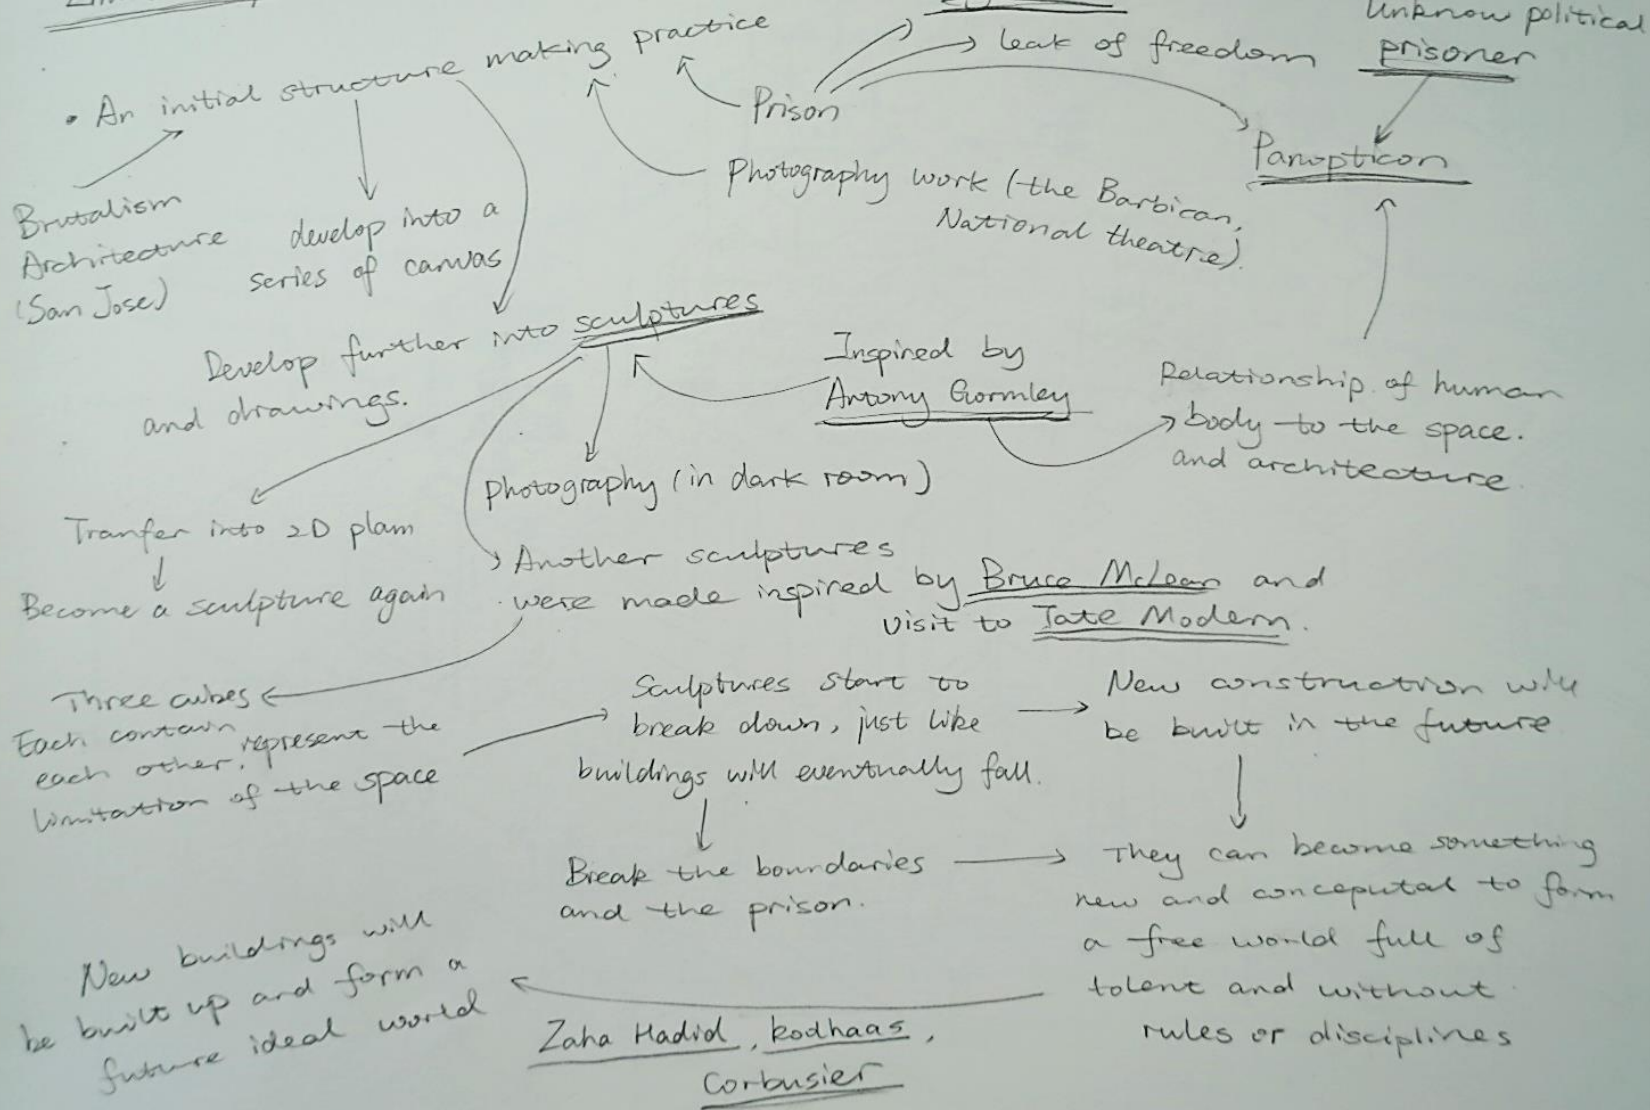 Unknow political
prisoner
leak of freedom
• An initial structure making practice
Prison
Panopticon
Photography work (the Barbican,
National theatre).
Brutalism
Architecture
(San Jose)
develop into a
series of canvas
Develop further into sculptures
and drawings.
Inspired by
Antony Gormley
Relationship of human
body to the space.
and architecture.
photography (in dark room)
Tranfer into 2D plam
Become a sculpture again
Another sculptures
were made inspired by Bruce McLean and
visit to Tate Modern.
Three cubes
Each contain
each other, represent the
limitation of the space
Sculptures start to
break down, just like
buildings will eventually fall.
New construction will
be built in the future
Break the boundaries
and the prison.
They can become something
new and conceputal to form
a free world full of
tolent and without
rules or disciplines
New buildings will
be built up and form a
future ideal world
Zaha Hadid, kodhaas,
Corbusier